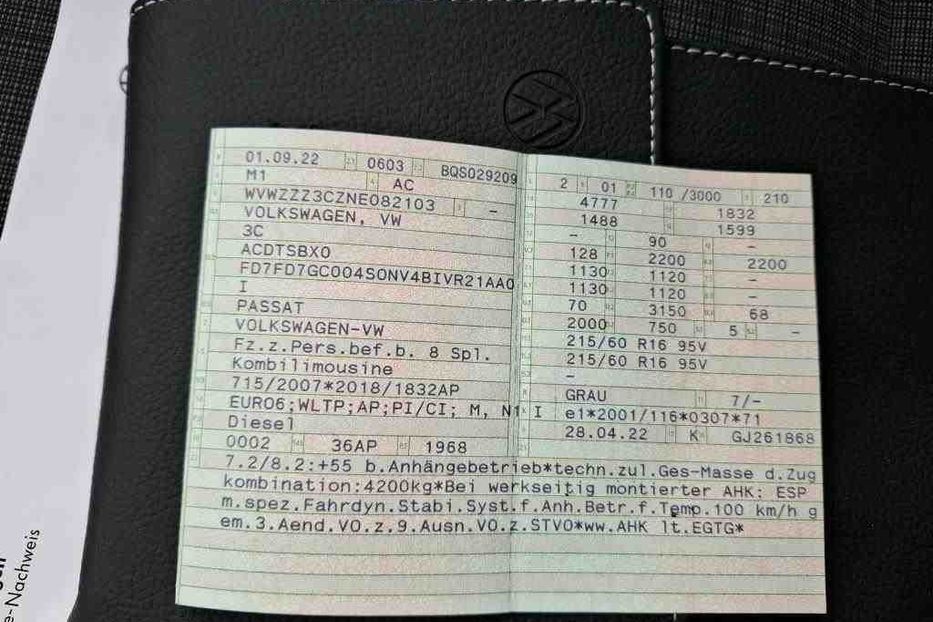 01.09.22 0603 BQS029209
M1 AC
WVWZZZ3CZNE082103 -
VOLKSWAGEN, VW
3C
ACDTSBX0
FD7FD7GC004S0NV4BIVR21AA0
I
PASSAT
VOLKSWAGEN-VW
Fz.z.Pers.bef.b. 8 Spl.
Kombilimousine
715/2007*2018/1832AP
EURO6;WLTP;AP;PI/CI; M, N1 I
Diesel
0002 36AP 1968
2 01 110 /3000 210
4777 1832
1488 1599
- 90 -
128 2200 2200
1130 1120 -
1130 1120 -
70 3150 68
2000 750 5 -
215/60 R16 95V
215/60 R16 95V
-
GRAU 7/-
e1*2001/116*0307*71
28.04.22 K GJ261868
7.2/8.2:+55 b.Anhängebetrieb*techn.zul.Ges-Masse d.Zug
kombination:4200kg*Bei werkseitig montierter AHK: ESP
m.spez.Fahrdyn.Stabi.Syst.f.Anh.Betr.f.Temp.100 km/h g
em.3.Aend.VO.z.9.Ausn.VO.z.STVO*ww.AHK lt.EGTG*
e-Nachweis